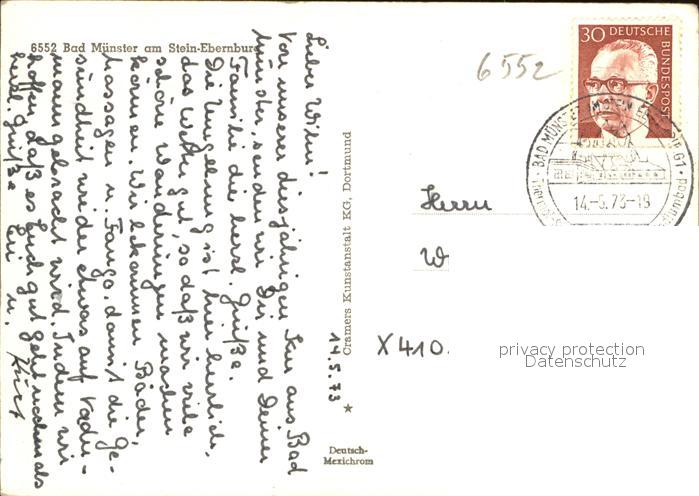 6552 Bad Münster am Stein-Ebernburg
Lieber Willi!
Von unserer diesjährigen Kur aus Bad
Münster, senden wir Dir und Deiner
Familie die herzl. Grüße.
Die Umgebung ist hier herrlich,
das Wetter gut, so daß wir viele
schöne Wanderungen machen
können. Wir bekommen Bäder,
Massagen u. Fango, damit die Ge-
sundheit wieder etwas auf Vader-
mann gebracht wird. Indem wir
hoffen, daß es Euch gut geht nochmals
herzl. Grüße
u. Kurt
14.5.73
Cramers Kunstanstalt KG, Dortmund
★
Deutsch-
Mexichrom
6552
30 DEUTSCHE
BUNDESPOST
BAD MÜNSTER AM STEIN
14.-5.73-19
Herrn
W
X410.
privacy protection
Datenschutz